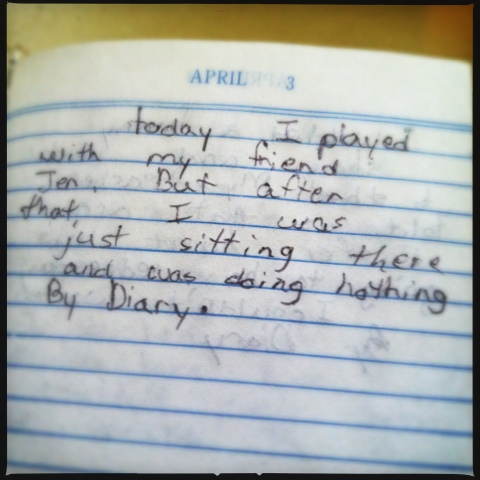 APRIL 3
today I played
with my friend
Jen. But after
that, I was
just sitting there
and was doing nothing
By Diary.